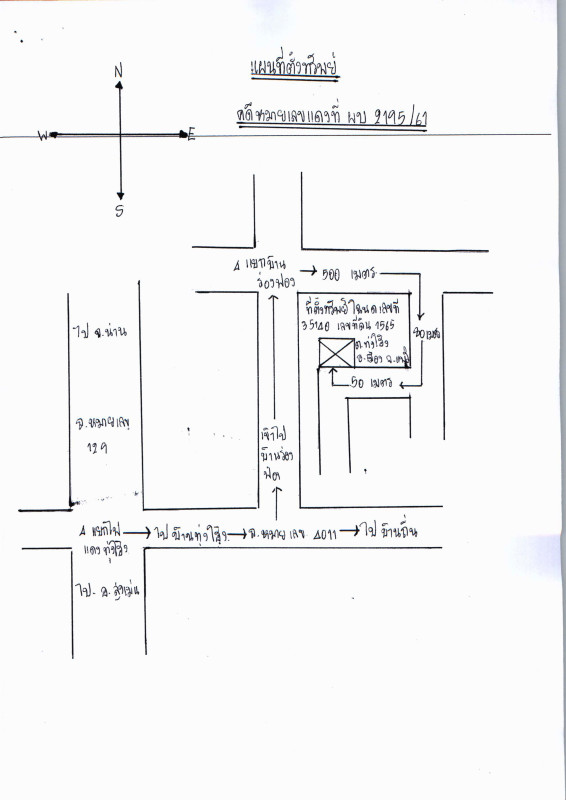 แผนที่ตั้งทรัพย์
คดีหมายเลขแดงที่ ผบ 2195/61
N
W
E
S
4 แยกบ้าน
ร่องฟอง
500 เมตร
ที่ตั้งทรัพย์ โฉนดเลขที่
35140 เลขที่ดิน 1565
ต.ทุ่งโฮ้ง
อ.เมือง จ.แพร่
เมตร
50 เมตร
ไป จ.น่าน
ถ.หมายเลข
129
เข้าไป
บ้านร่อง
ฟอง
4 แยกไฟ
แดงทุ่งโฮ้ง
ไปบ้านทุ่งโฮ้ง
ถ.หมายเลข 4011
ไปบ้านถิ่น
ไป อ.สูงเม่น